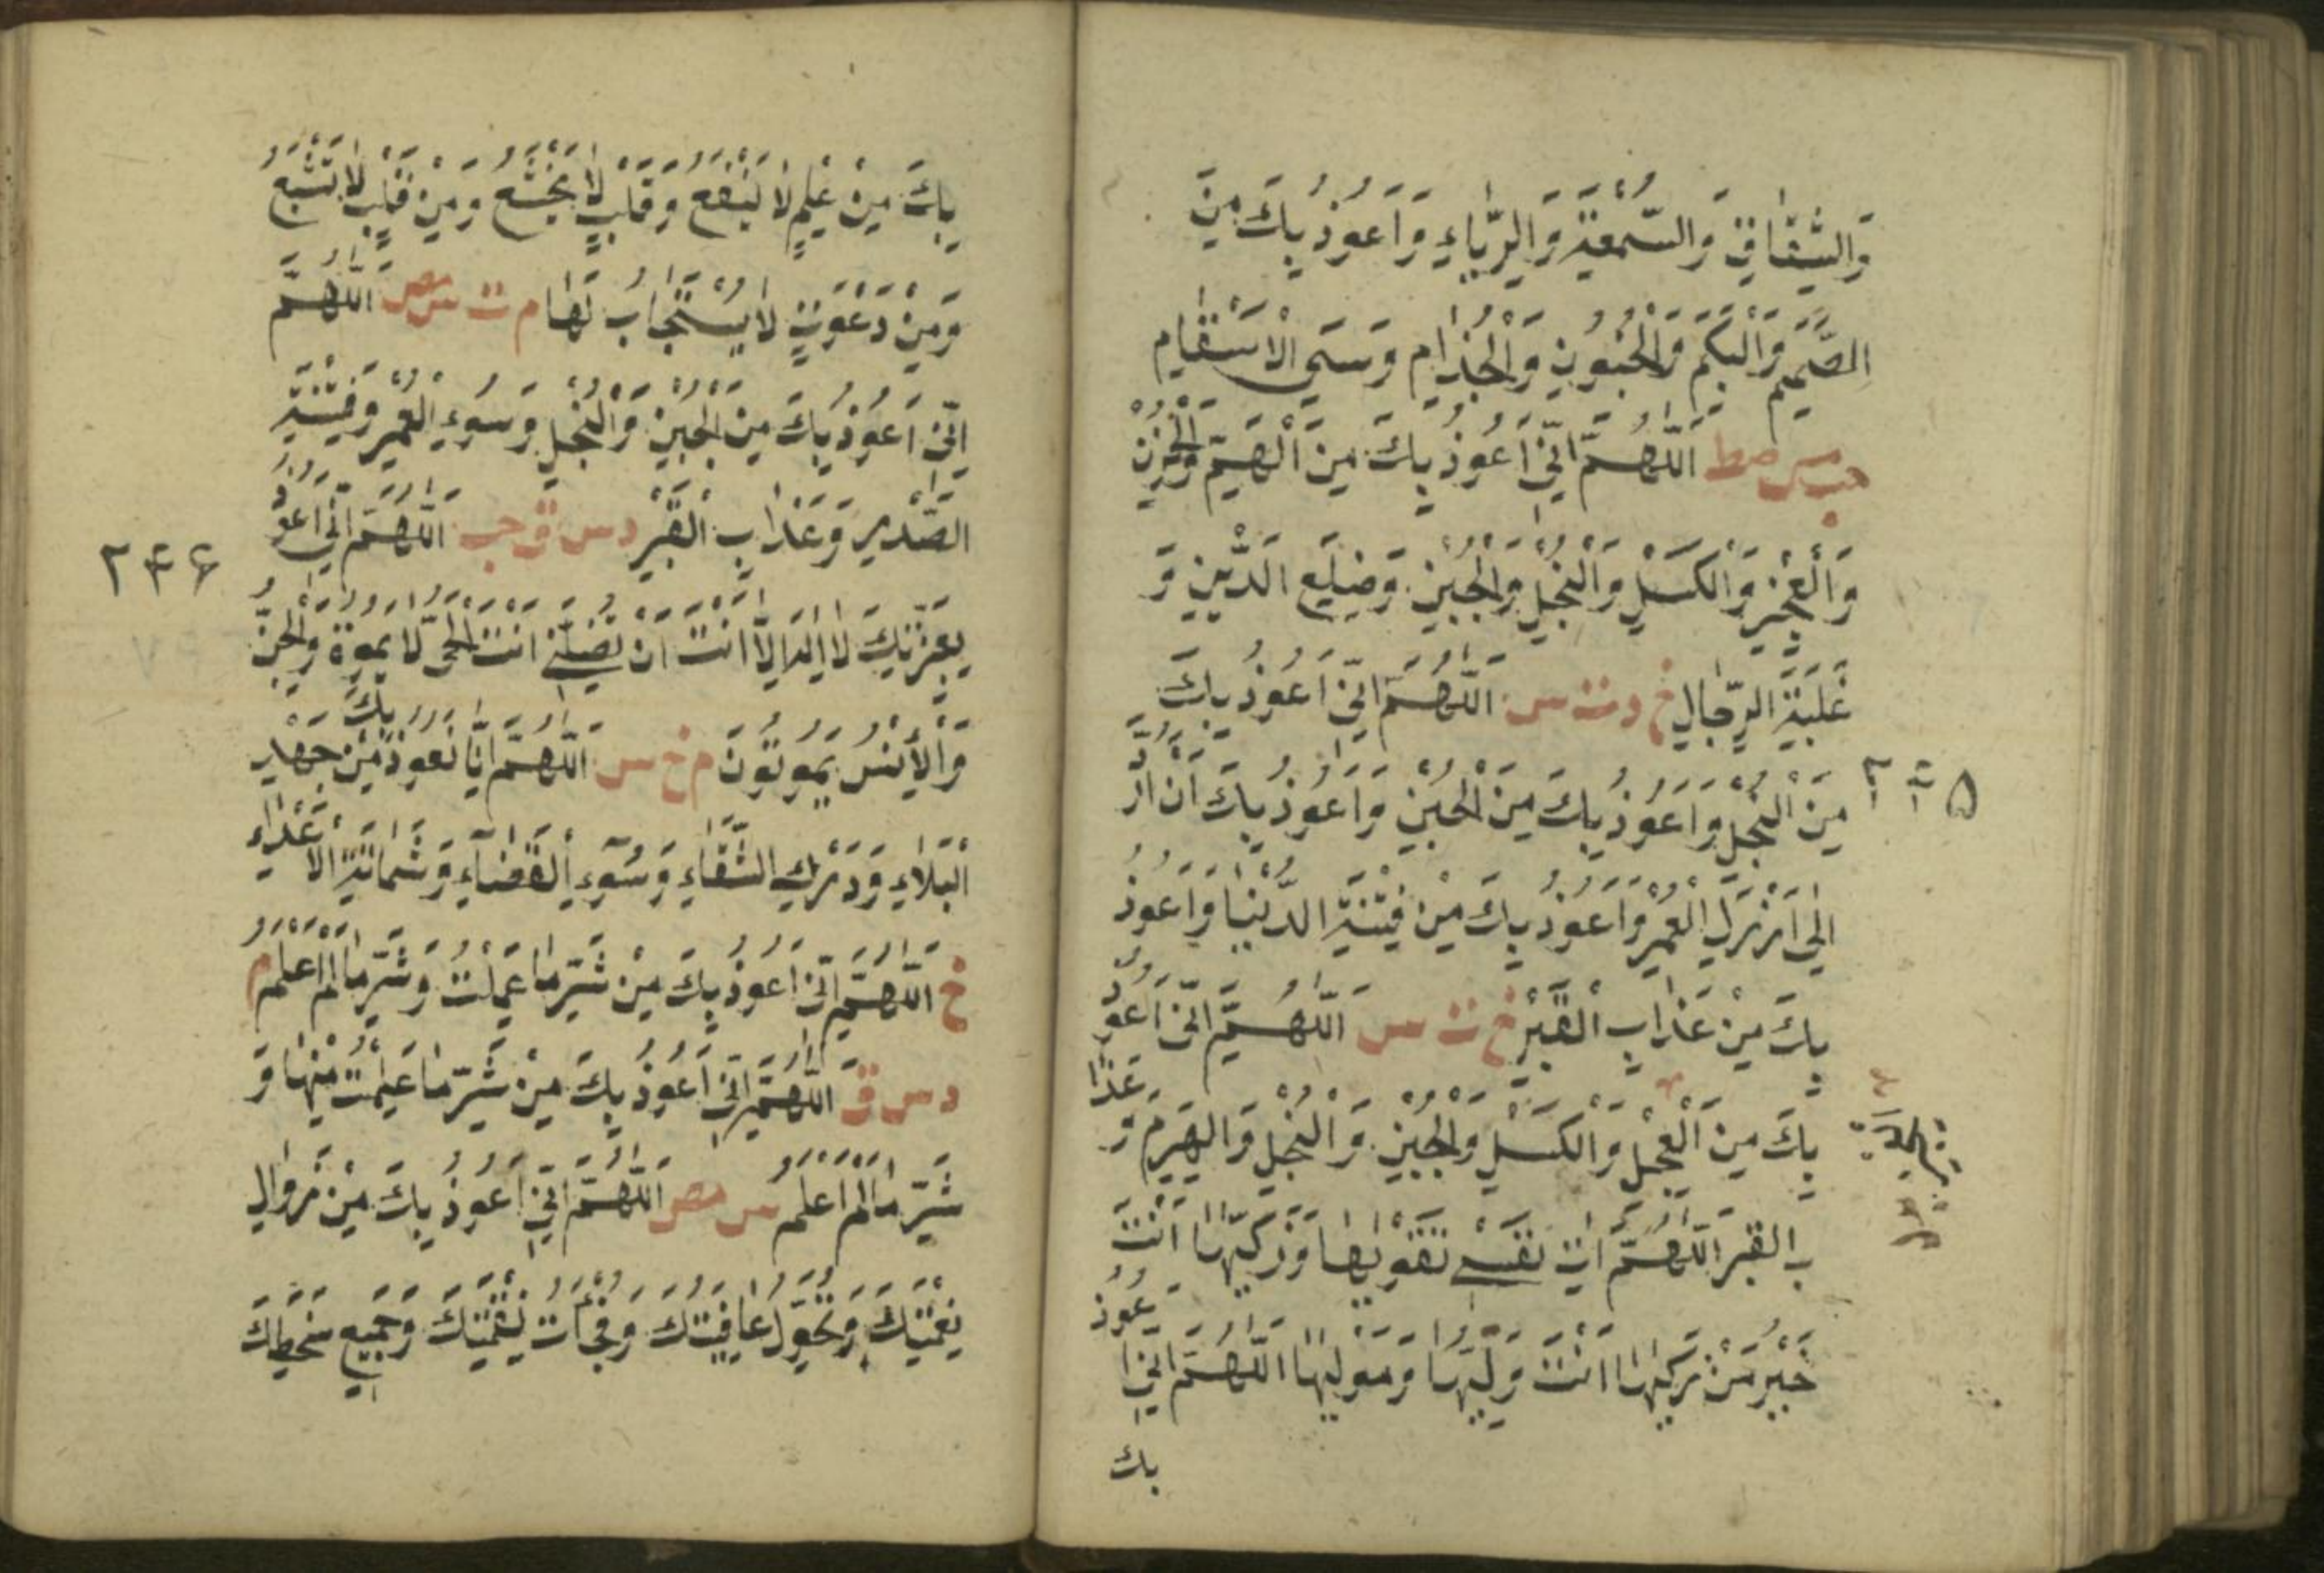 وَالشِّقَاقِ وَالسُّمْعَةِ وَالرِّيَاءِ وَاَعُوذُ بِكَ مِنَ
الصَّمَمِ وَالْبَكَمِ وَالْجُنُونِ وَالْجُذَامِ وَسَیِّ الْاَسْقَامِ
حب مس صط اَللّٰهُمَّ اِنِّي اَعُوذُ بِكَ مِنَ الْهَمِّ وَالْحُزْنِ
وَالْعَجْزِ وَالْكَسَلِ وَالْبُخْلِ وَالْجُبْنِ وَضِلَعِ الدَّيْنِ وَ
غَلَبَةِ الرِّجَالِ خ د ت س اَللّٰهُمَّ اِنِّي اَعُوذُ بِكَ
مِنَ الْبُخْلِ وَاَعُوذُ بِكَ مِنَ الْجُبْنِ وَاَعُوذُ بِكَ اَنْ اُرَدَّ
اِلٰى اَرْذَلِ الْعُمُرِ وَاَعُوذُ بِكَ مِنْ فِتْنَةِ الدُّنْيَا وَاَعُوذُ
بِكَ مِنْ عَذَابِ الْقَبْرِ خ ت س اَللّٰهُمَّ اِنِّي اَعُوذُ
بِكَ مِنَ الْعَجْلِ وَالْكَسَلِ وَالْجُبْنِ وَالْبُخْلِ وَالْهَرَمِ وَ عَذَا
بِ الْقَبْرِ اَللّٰهُمَّ اٰتِ نَفْسِي تَقْوٰيهَا وَزَكِّهَا اَنْتَ
خَيْرُ مَنْ زَكّٰيهَا اَنْتَ وَلِيُّهَا وَمَوْلٰيهَا اَللّٰهُمَّ اِنِّي اَعُوذُ
بك
٢۴۵
بِكَ مِنْ عِلْمٍ لَا يَنْفَعُ وَقَلْبٍ لَا يَخْشَعُ وَمِنْ قَلْبٍ لَا تَشْبَعُ
وَمِنْ دَعْوَتٍ لَا يُسْتَجَابُ لَهَا م ت س مص اَللّٰهُمَّ
اِنِّي اَعُوذُ بِكَ مِنَ الْجُبْنِ وَالْبُخْلِ وَسُوءِ الْعُمُرِ وَفِتْنَةِ
الصَّدْرِ وَعَذَابِ الْقَبْرِ د س ق حب اَللّٰهُمَّ اِنِّي اَعُوذُ
بِعِزَّتِكَ لَا اِلٰهَ اِلَّا اَنْتَ اَنْ تُضِلَّنِي اَنْتَ الْحَيُّ لَا يَمُوةُ وَالْجِنُّ
وَالْاِنْسُ يَمُوتُونَ م خ س اَللّٰهُمَّ اِنَّا نَعُوذُ بِكَ مِنْ جَهْدِ
الْبَلَاءِ وَدَرْكِ الشَّقَاءِ وَسُوءِ الْقَضَاءِ وَشَمَاتَةِ الْاَعْدَاءِ
خ اَللّٰهُمَّ اِنِّي اَعُوذُ بِكَ مِنْ شَرِّ مَا عَمِلْتُ وَشَرِّ مَا لَمْ اَعْلَمُ م
د س ق اَللّٰهُمَّ اِنِّي اَعُوذُ بِكَ مِنْ شَرِّ مَا عَلِمْتُ مِنْهَا وَ
شَرِّ مَا لَمْ اَعْلَمُ س مص اَللّٰهُمَّ اِنِّي اَعُوذُ بِكَ مِنْ زَوَالِ
نِعْمَتِكَ وَتَحَوُّلِ عَافِيَتِكَ وَفُجَاءَتِ نِقْمَتِكَ وَجَمِيعِ سَخَطِكَ
٢۴۶